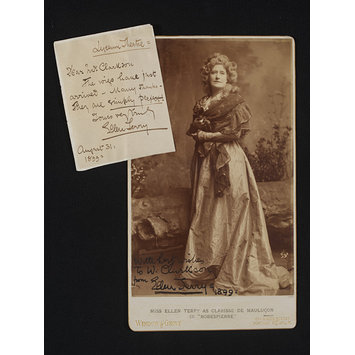 Lyceum Theatre =
Dear Mr. Clarkson
The wigs have just
arrived - Many thanks -
They are simply
Yours very truly
Ellen Terry
August 31.
1899 =
With best wishes
to W. Clarkson
from
Ellen Terry =
1899 =
MISS ELLEN TERRY AS CLARISSE DE MAULUÇON
IN "ROBESPIERRE"
WINDOW & GROVE